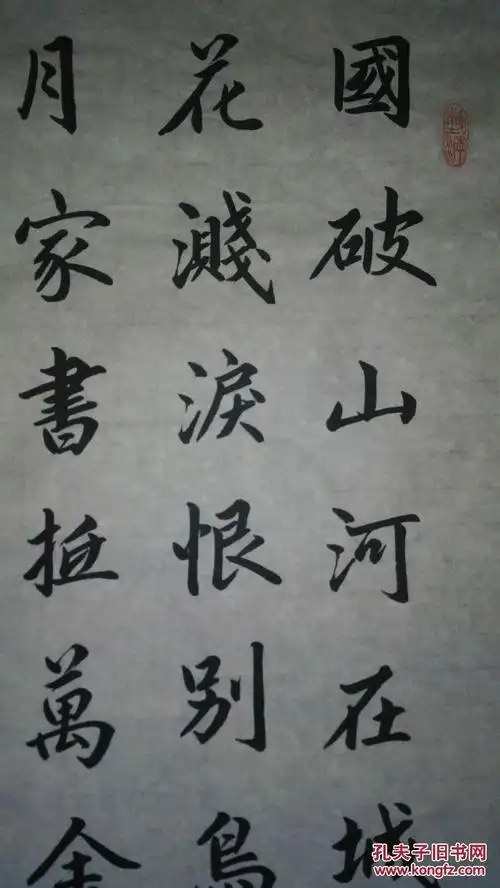 國破山河在城
花濺淚恨別鳥
月家書抵萬金
孔夫子旧书网
www.kongfz.com